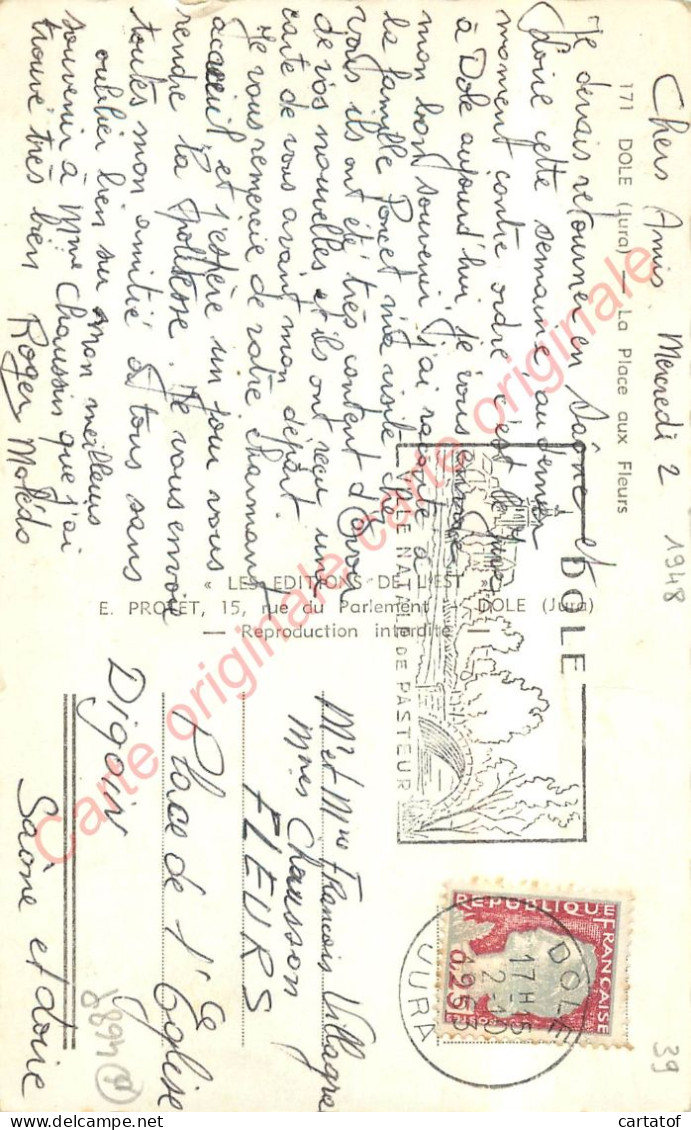 171 DOLE (Jura) — La Place aux Fleurs
Chers Amis Mercredi 2
1948
Je devais retourner en Saône et
Loire cette semaine, au dernier
moment contre ordre, c'est
à Dole aujourd'hui, je vous envoie
mon bon souvenir, j'ai raconté à
la famille Poncet ma visite chez
vous ils ont été très content d'avoir
de vos nouvelles et ils ont reçu une
carte de vous avant mon départ
Je vous remercie de votre charmant
accueil et j'espère un jour vous
rendre la politesse. Je vous envoie
toutes mon amitié à tous sans
oublier bien sur mon meilleurs
souvenir à Mme Chaussin que j'ai
trouvé très bien Roger
« LES EDITIONS DE L'EST »
E. PROTET, 15, rue du Parlement - DOLE (Jura)
— Reproduction interdite —
DOLE
VILLE NATALE DE PASTEUR
Mr et Mme François Villagre
Mmes Chausson
FLEURS
Place de l'Eglise
Digoin
Saône et Loire
REPUBLIQUE FRANÇAISE
0,25
DOLE
17H15
2-10
1963
JURA
39
Carte originale carte originale carte originale
cartatof